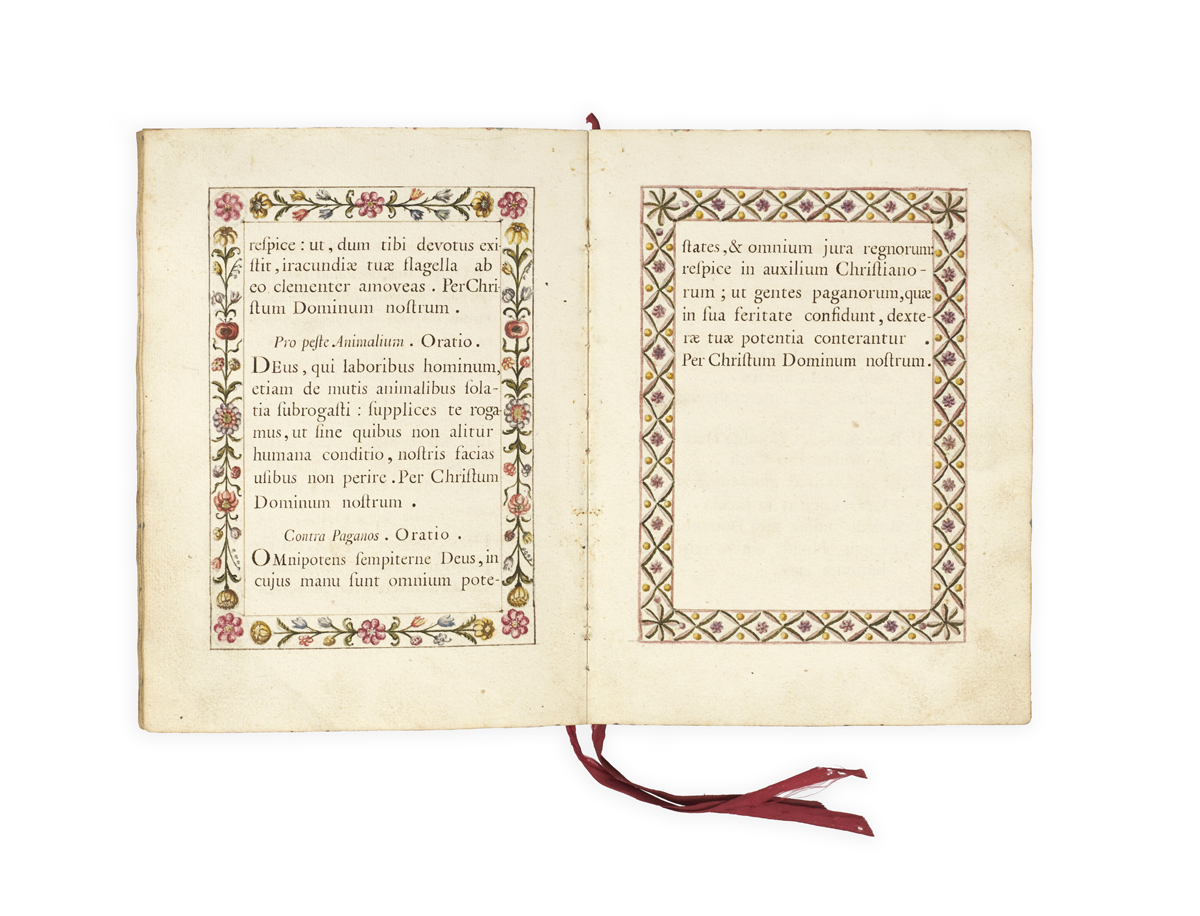 reſpice : ut , dum tibi devotus exi-
ſtit , iracundiæ tuæ flagella ab
eo clementer amoveas . Per Chri-
ſtum Dominum noſtrum .
Pro peſte Animalium . Oratio .
DEus , qui laboribus hominum,
etiam de mutis animalibus ſola-
tia ſubrogaſti : ſupplices te roga-
mus , ut ſine quibus non alitur
humana conditio , noſtris facias
uſibus non perire . Per Chriſtum
Dominum noſtrum .
Contra Paganos . Oratio .
OMnipotens ſempiterne Deus , in
cujus manu ſunt omnium pote-
ſtates , & omnium jura regnorum:
reſpice in auxilium Chriſtiano-
rum ; ut gentes paganorum, quæ
in ſua feritate confidunt , dexte-
ræ tuæ potentia conterantur .
Per Chriſtum Dominum noſtrum .